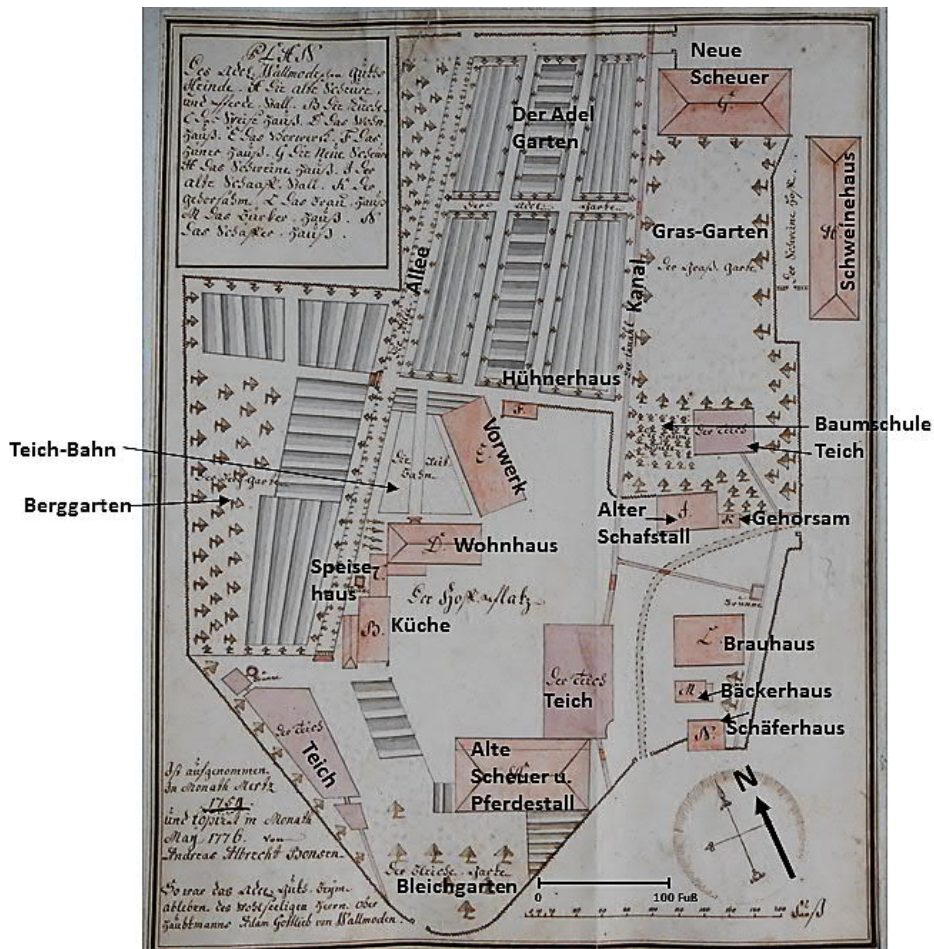 PLAN
Des Adel. Wallmoden Guts
Heinde. A Die alte Scheure,
und Pferde Stall. B Die Küche
C Das Speise Hauß. D Das Wohn
Hauß. E Das Vorwerck. F Das
Hüner Hauß. G Die Neue Scheure
H Das Schweine Hauß. I Der
alte Schaaff Stall. K Der
Gehorsahm. L Das Brau Hauß
M Das Backer Hauß. N
Das Schäffer Hauß.
Neue
Scheuer
G.
Der Adel
Garten
Der Adel. Garte
Schweinehaus
H.
Der Schweine Hoff.
Gras-Garten
Der Graß Garte
Allee
Kanal
Der Canahl
Hühnerhaus
F.
Vorwerk
E.
Baumschule
Teich
Der Teich
Teich-Bahn
Die Reit
Bahn
Berggarten
Alter
Schafstall
I.
K.
Gehorsam
D.
Wohnhaus
Speise
haus
C.
Der Hoff Platz
B.
Küche
Brunne
L.
Brauhaus
M.
Bäckerhaus
N.
Schäferhaus
Brunne
Der Teich
Teich
Der Teich
Teich
Alte
Scheuer u.
Pferdestall
A.
N
Ist aufgenommen
in Monath Mertz
und Copirt in Monath
May 1776. von
Andreas Albrecht Bonsen.
Der Bleiche Garte
Bleichgarten
0 100 Fuß
So war das Adel. Guts beym
ableben des Wohlseeligen Herrn Ober
Hauptmanns Adam Gottlieb von Wallmoden.